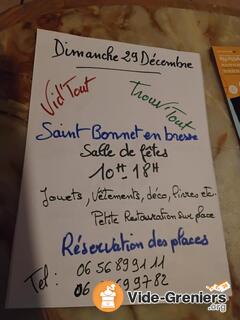 Dimanche 29 Décembre
Vid'Tout
Trouv'Tout
Saint Bonnet en bresse
Salle de fêtes
10H 18H
Jouets, Vêtements, déco, Livres etc.
Petite Restauration sur place
Réservation des places
Tel: 06 56 89 91 11
06 99 782
Vide-Greniers
.org